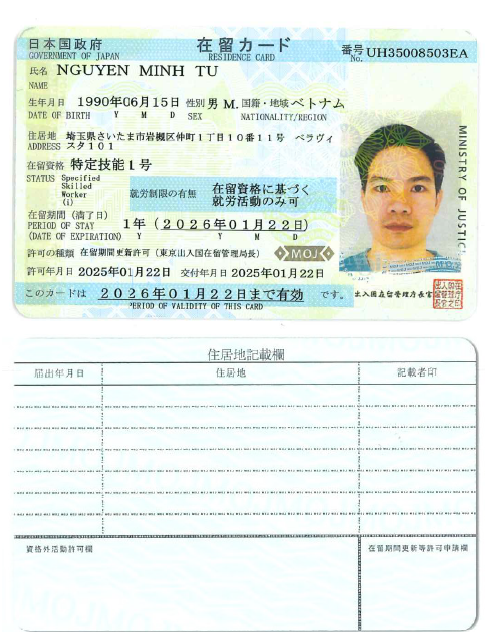 日本国政府 在留カード 番号 UH35008503EA
GOVERNMENT OF JAPAN RESIDENCE CARD No.
氏名 NGUYEN MINH TU
NAME
生年月日 1990年06月15日 性別 男 M. 国籍・地域 ベトナム
DATE OF BIRTH Y M D SEX NATIONALITY/REGION
住居地 埼玉県さいたま市岩槻区仲町1丁目10番11号 ベラヴィ
ADDRESS スタ101
在留資格 特定技能1号
STATUS Specified
Skilled
Worker
(i)
就労制限の有無 在留資格に基づく
就労活動のみ可
在留期間(満了日) 1年(2026年01月22日)
PERIOD OF STAY
(DATE OF EXPIRATION) Y Y M D
許可の種類 在留期間更新許可(東京出入国在留管理局長)
MOJ
許可年月日 2025年01月22日 交付年月日 2025年01月22日
このカードは 2026年01月22日まで有効 です。
PERIOD OF VALIDITY OF THIS CARD
出入国在留管理庁長官
MINISTRY OF JUSTIC
住居地記載欄
届出年月日 住居地 記載者印
資格外活動許可欄 在留期間更新等許可申請欄